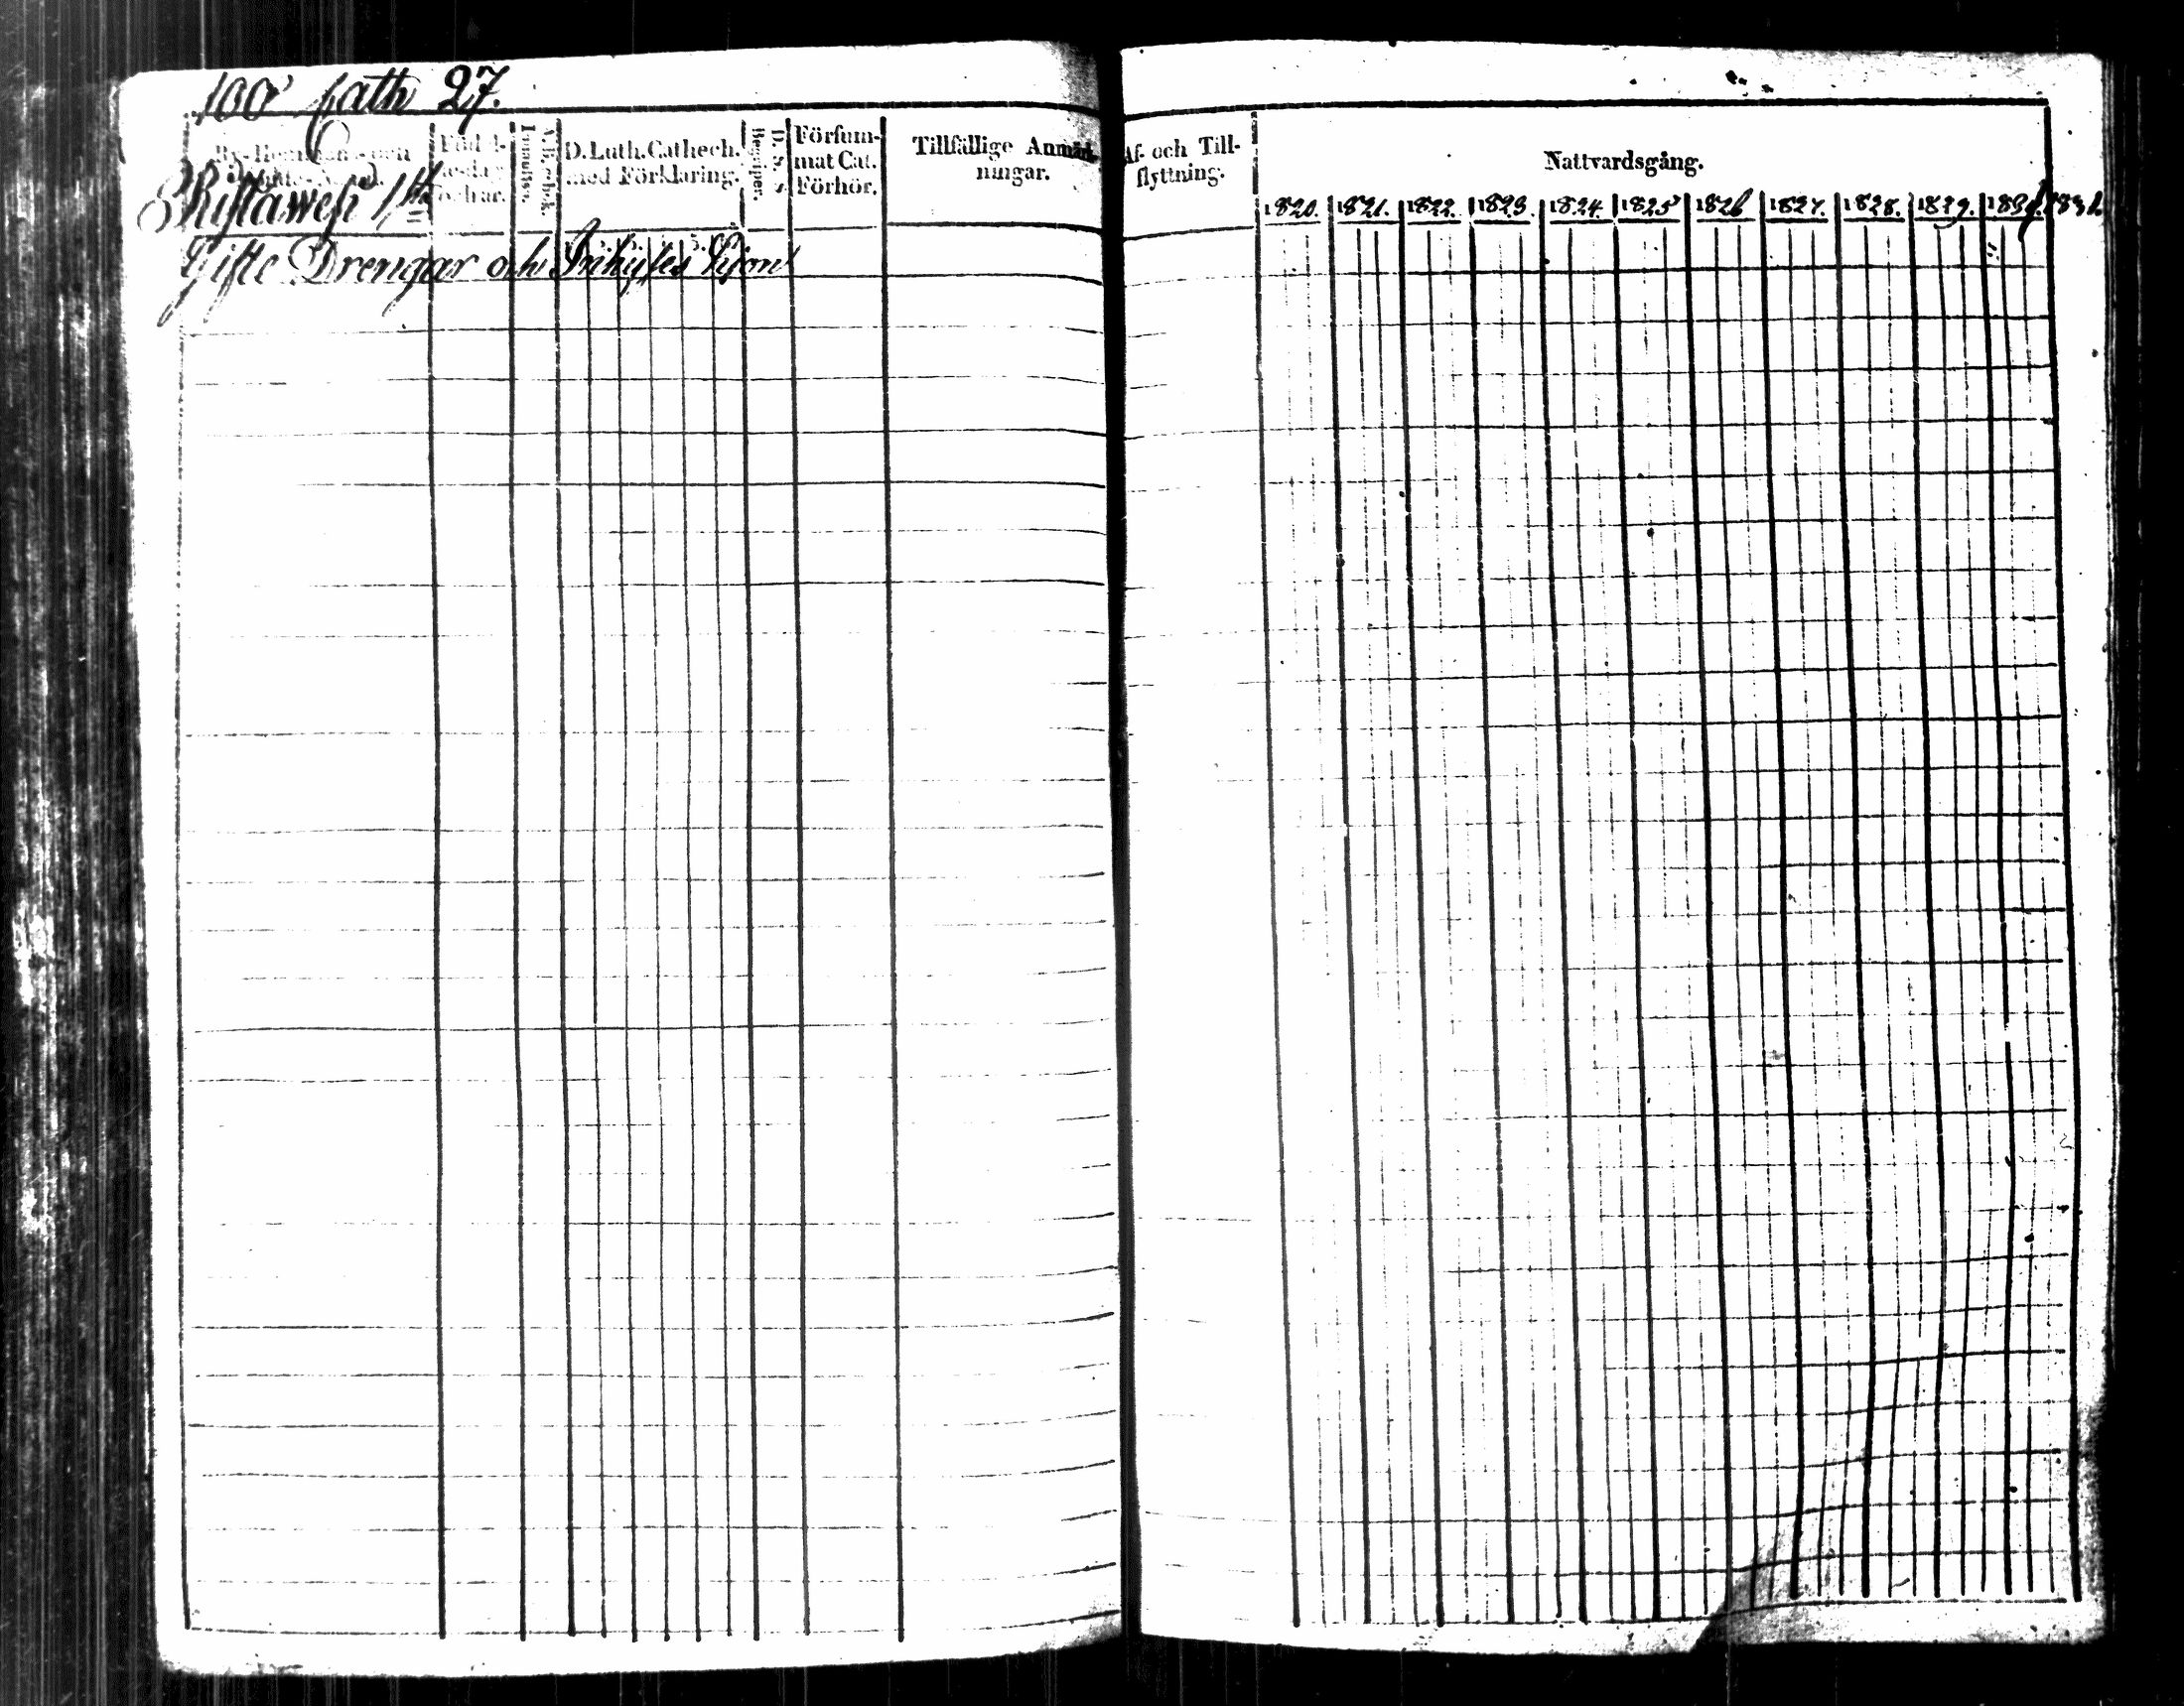 100 Cath 27.
By- Hemmans- och
Födel-
sedag
och år.
A. B. C-bok.
Innanläsn.
D. Luth. Cathech.
med Förklaring.
D. S. S.
Begriper.
Försum-
mat Cat.
Förhör.
Tillfällige Anmärk-
ningar.
Ristawesi 1
Gifte Drengar och Inhyses hjon
Af- och Till-
flyttning.
Nattvardsgång.
1820. 1821. 1822. 1823. 1824. 1825 1826 1827. 1828. 1829.